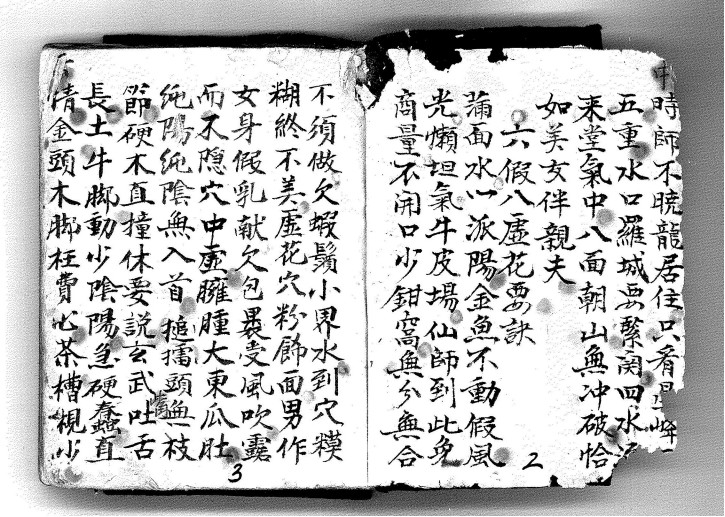 中時師不曉龍居住只看
五重水口羅城要緊関四水
来堂氣中八面朝山無冲破恰
如美女伴親夫
六假八虛花要訣
蒲面水心派陽金魚不動假風
光懶坦氣牛皮場仙師到此免
商量不開口少鉗窩無分無合
2
不須做欠蝦鬚小界水到穴糢
糊終不美虛花穴粉飾面男作
女身假乳献欠包裹受風吹露
而不隐穴中虛臃腫大東瓜肚
純陽純陰無入首搥擂頭無枝
節硬木直撞休要説玄武吐舌
長土牛腳動少陰陽急硬蠢直
清金頭木腳枉費心茶槽櫬少
3